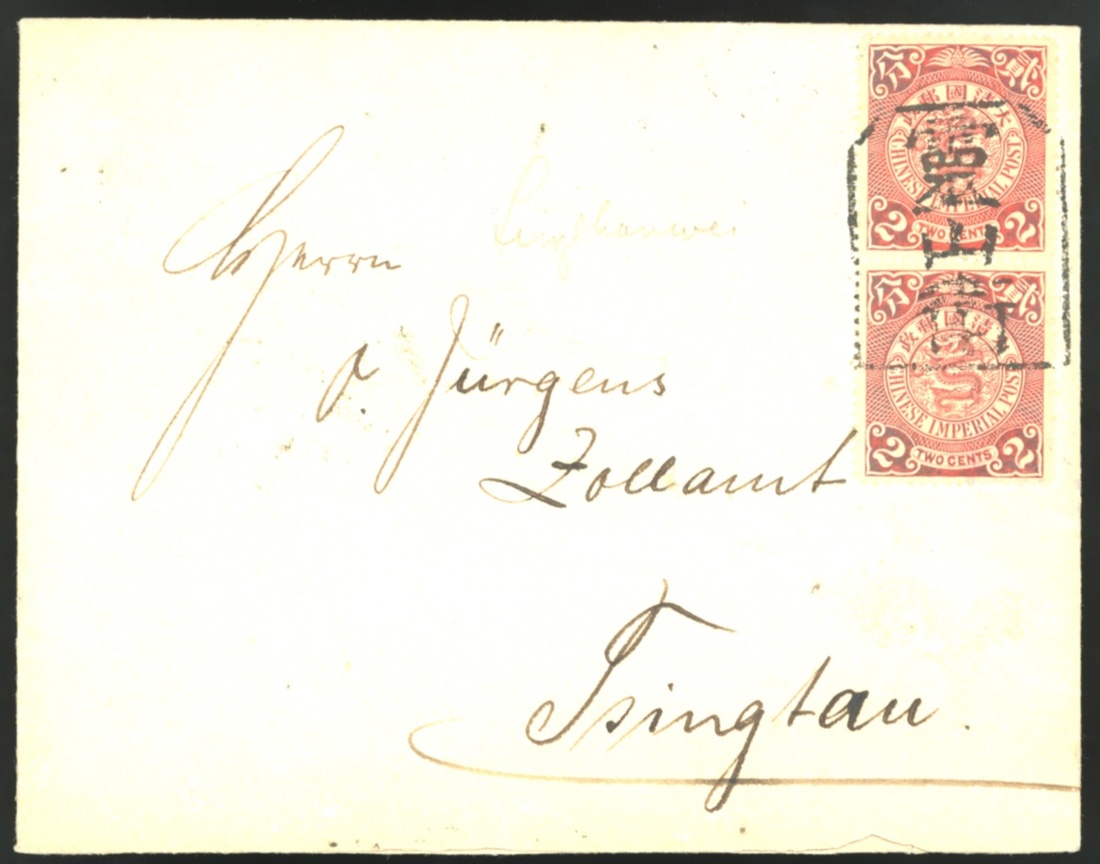 Herrn
P. Jürgens
Zollamt
Tsingtau.
分 貳
大清國郵政
CHINESE IMPERIAL POST
2 TWO CENTS 2
分 貳
大清國郵政
CHINESE IMPERIAL POST
2 TWO CENTS 2